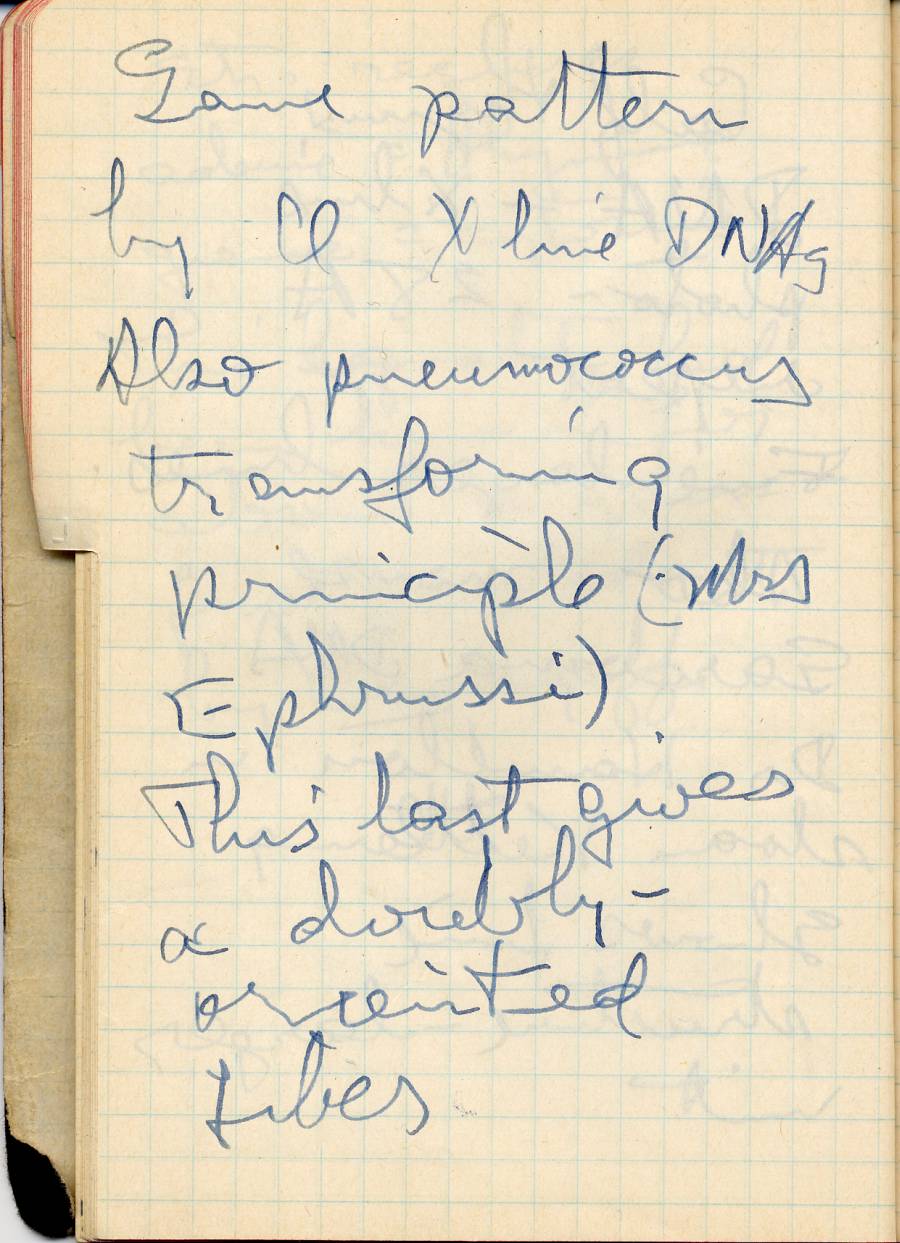 Same pattern
by Cl X line DNAg
Also pneumococcus
transforming
principle (Mrs
Ephrussi)
This last gives
a doubly-
oriented
fiber